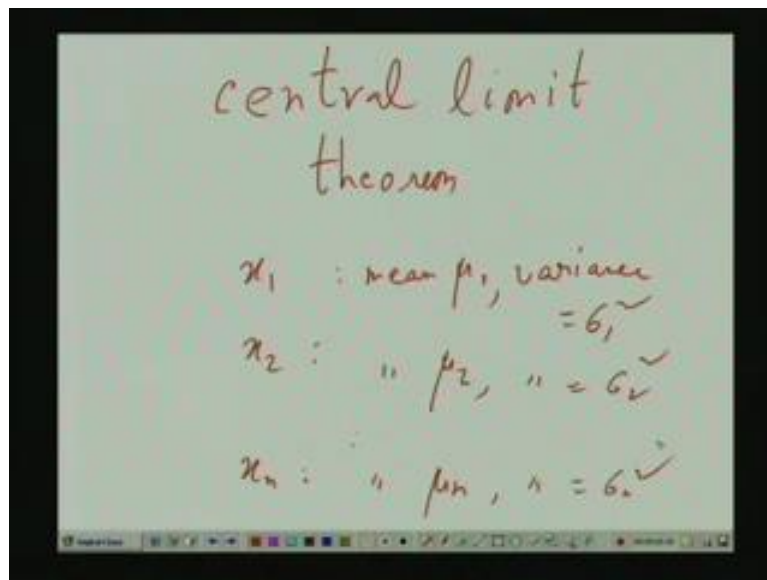 central limit
theorem
x₁ : mean μ₁, variance
= σ₁²
x₂ : " μ₂, " = σ₂²
xₙ : " μₙ, " = σₙ²